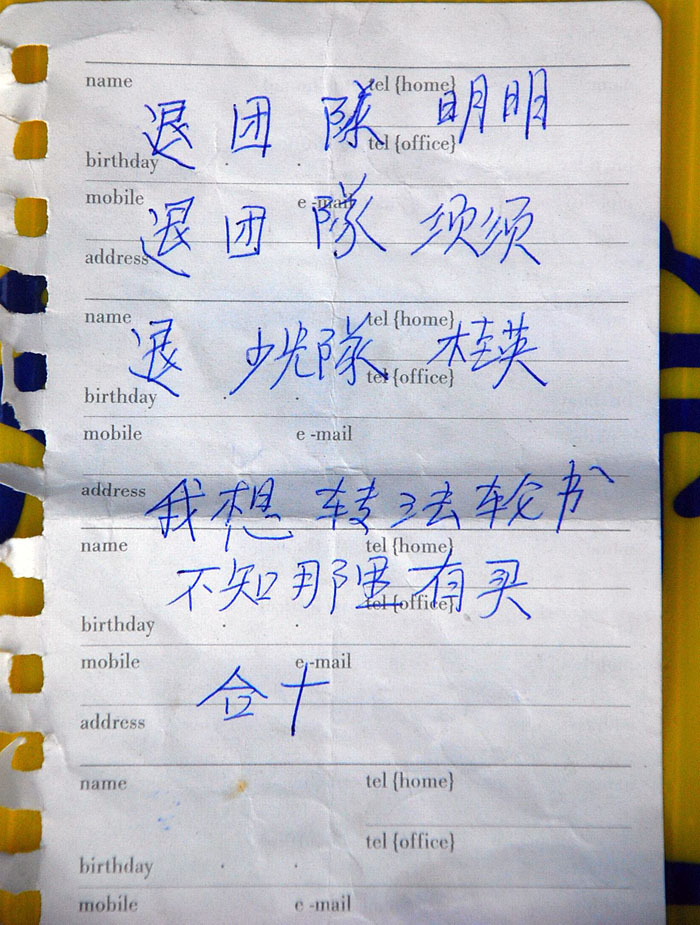 name tel {home}
退 团 隊 明明
tel {office}
birthday
mobile e -mail
退 团 隊 须须
address
name tel {home}
退 少先隊 桂英
tel {office}
birthday
mobile e -mail
address
我想 转法轮书
name tel {home}
不知那里有买
tel {office}
birthday
mobile e -mail
合十
address
name tel {home}
tel {office}
birthday
mobile e -mail